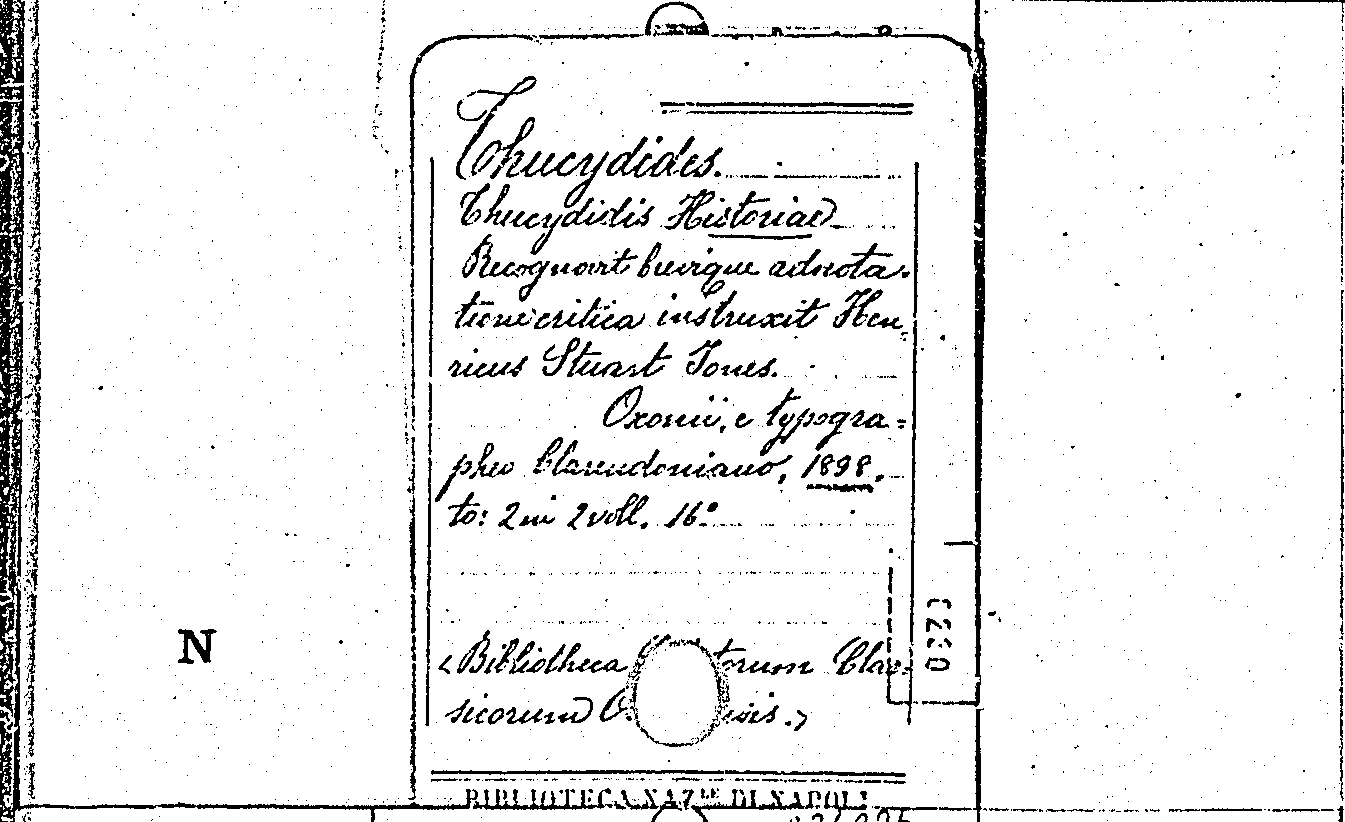 Thucydides.
Thucydidis Historiae
Recognovit brevique adnota-
tione critica instruxit Hen-
ricus Stuart Jones.
Oxonii, e typogra=
pheo Clarendoniano, 1898.
to: 2 in 2 voll. 16º
N
0333
<Bibliotheca torum Clas-
sicorum O sis.>
BIBLIOTECA NAZ.LE DI NAPOLI